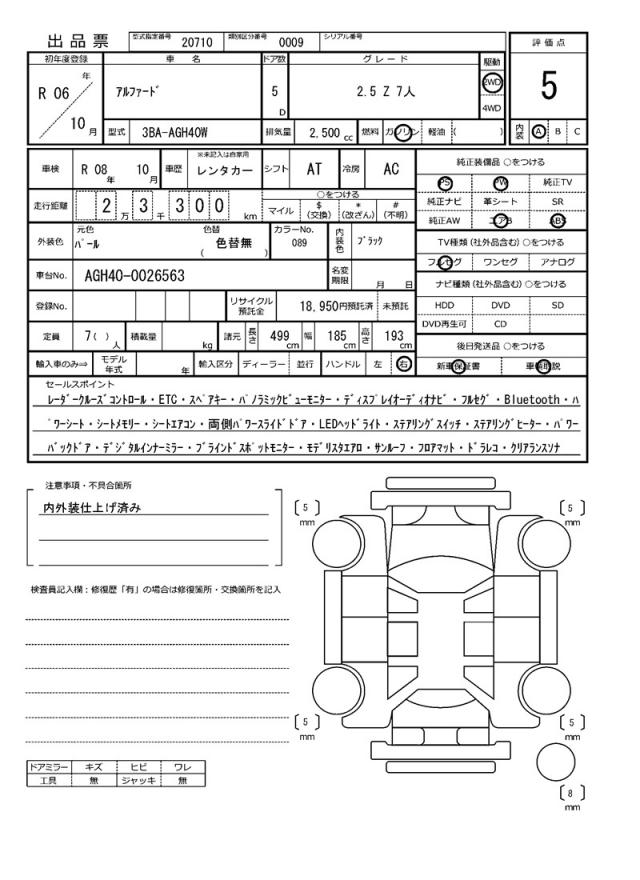 出品票 型式指定番号 20710 類別区分番号 0009 シリアル番号
評価点
5
内装 A B C
初年度登録 車名 ドア数 グレード 駆動
R 06 年 10 月 アルファード 5 D 2.5 Z 7人 2WD 4WD
型式 3BA-AGH40W 排気量 2,500 cc 燃料 ガソリン 軽油 ( )
車検 R 08 年 10 月 車歴 ※未記入は自家用 レンタカー シフト AT 冷房 AC
走行距離 2 万 3 千 3 0 0 km ○をつける
マイル $ (交換) * (改ざん) # (不明)
外装色 元色 パール 色替 ( 色替無 ) カラーNo. 089 内装色 ブラック
車台No. AGH40-0026563 名変期限 月 日
登録No. リサイクル預託金 18,950円預託済 未預託
定員 7( ) 人 積載量 kg 諸元 長さ 499 cm 幅 185 cm 高さ 193 cm
輸入車のみ⇒ モデル年式 年 輸入区分 ディーラー ・ 並行 ハンドル 左 ・ 右
純正装備品 ○をつける
PS PW 純正TV
純正ナビ 革シート SR
純正AW エアB ABS
TV種類(社外品含む) ○をつける
フルセグ ワンセグ アナログ
ナビ種類(社外品含む) ○をつける
HDD DVD SD
DVD再生可 CD
後日発送品 ○をつける
新車保証書 車輌取説
セールスポイント
レーダークルーズコントロール・ETC・スペアキー・パノラミックビューモニター・ディスプレイオーディオナビ・フルセグ・Bluetooth・ハ
ワーシート・シートメモリー・シートエアコン・両側パワースライドドア・LEDヘッドライト・ステアリングスイッチ・ステアリングヒーター・パワー
バックドア・デジタルインナーミラー・ブラインドスポットモニター・モデリスタエアロ・サンルーフ・フロアマット・ドラレコ・クリアランスソナ
注意事項・不具合箇所
内外装仕上げ済み
検査員記入欄:修復歴「有」の場合は修復箇所・交換箇所を記入
[ 5 ] mm
[ 5 ] mm
[ 5 ] mm
[ 5 ] mm
[ 8 ] mm
ドアミラー キズ ヒビ ワレ
工具 無 ジャッキ 無